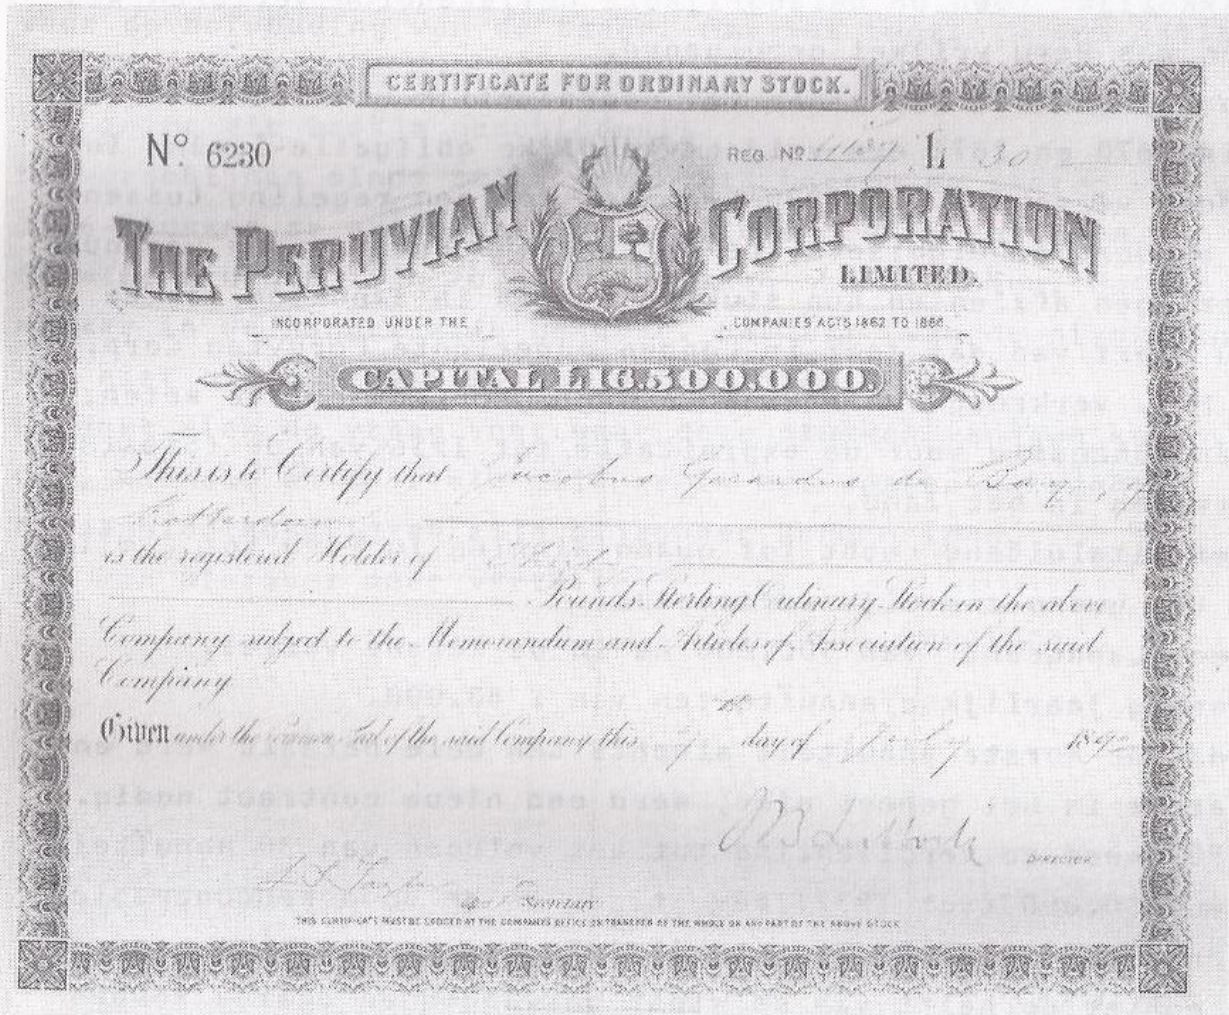 CERTIFICATE FOR ORDINARY STOCK.
Nº 6230
REG. Nº L 30
THE PERUVIAN CORPORATION
LIMITED.
INCORPORATED UNDER THE COMPANIES ACTS 1862 TO 1886.
CAPITAL £16.500.000.
This is to Certify that Jacobus Gerardus de
Rotterdam
is the registered Holder of Thirty
Pounds Sterling Ordinary Stock in the above
Company subject to the Memorandum and Articles of Association of the said
Company
Given under the Common Seal of the said Company this day of July 1890
DIRECTOR
Secretary
THIS CERTIFICATE MUST BE LODGED AT THE COMPANIES OFFICE ON TRANSFER OF THE WHOLE OR ANY PART OF THE ABOVE STOCK